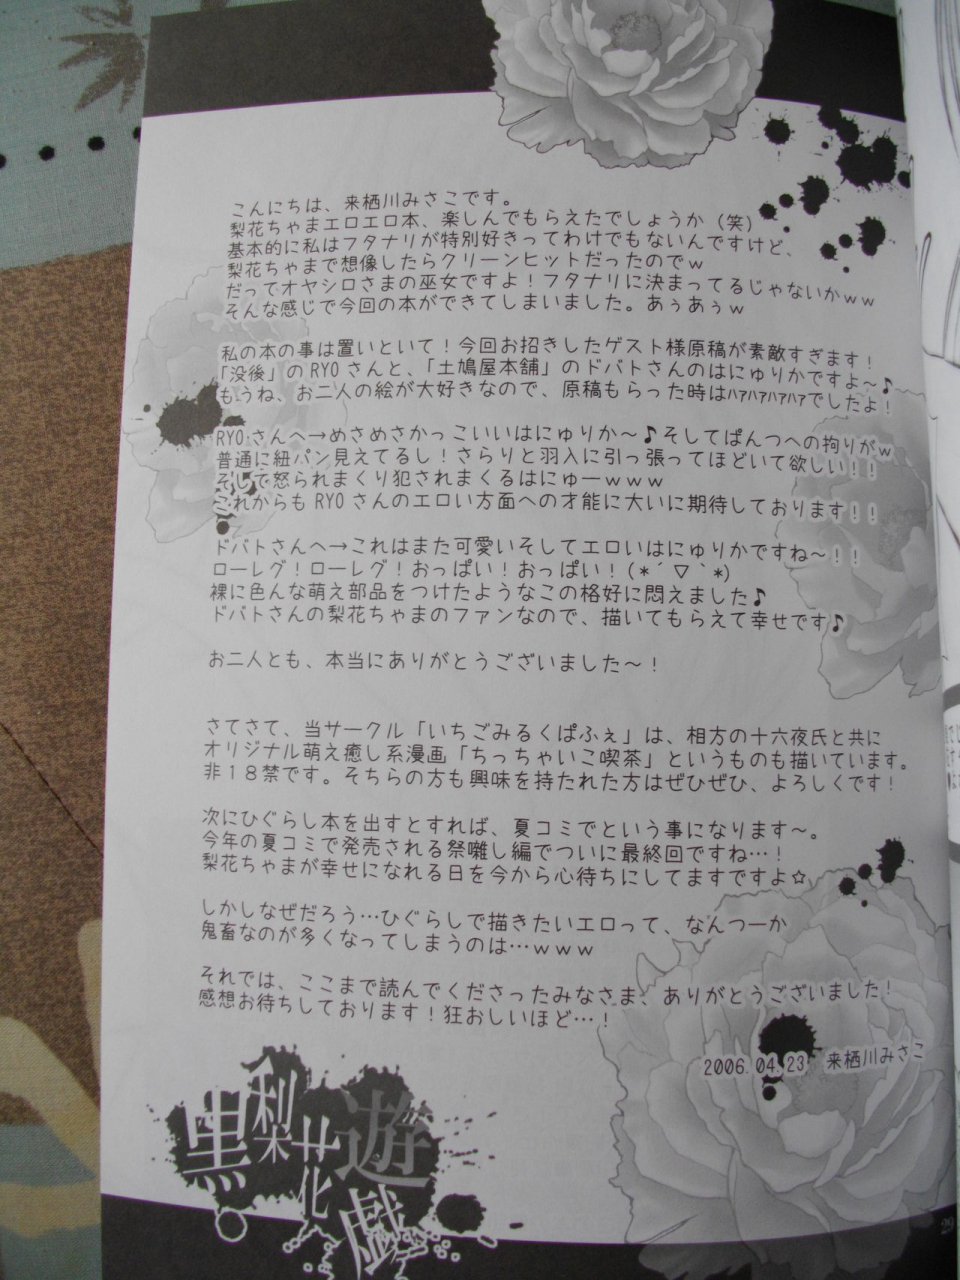 こんにちは、来栖川みさこです。
梨花ちゃまエロエロ本、楽しんでもらえたでしょうか（笑）
基本的に私はフタナリが特別好きってわけでもないんですけど、
梨花ちゃまで想像したらクリーンヒットだったのでｗ
だってオヤシロさまの巫女ですよ！フタナリに決まってるじゃないかｗｗ
そんな感じで今回の本ができてしまいました。あぅあぅｗ
私の本の事は置いといて！今回お招きしたゲスト様原稿が素敵すぎます！
「没後」のRYOさんと、「土鳩屋本舗」のドバトさんのはにゅりかですよ～♪
もうね、お二人の絵が大好きなので、原稿もらった時はﾊｱﾊｱﾊｱﾊｱでしたよ！
RYOさんへ→めさめさかっこいいはにゅりか～♪そしてぱんつへの拘りがｗ
普通に紐パン見えてるし！さらりと羽入に引っ張ってほどいて欲しい！！
そして怒られまくり犯されまくるはにゅーｗｗｗ
これからもRYOさんのエロい方面への才能に大いに期待しております！！
ドバトさんへ→これはまた可愛いそしてエロいはにゅりかですね～！！
ローレグ！ローレグ！おっぱい！おっぱい！(*´▽`*)
裸に色んな萌え部品をつけたようなこの格好に悶えました♪
ドバトさんの梨花ちゃまのファンなので、描いてもらえて幸せです♪
お二人とも、本当にありがとうございました～！
さてさて、当サークル「いちごみるくぱふぇ」は、相方の十六夜氏と共に
オリジナル萌え癒し系漫画「ちっちゃいこ喫茶」というものも描いています。
非１８禁です。そちらの方も興味を持たれた方はぜひぜひ、よろしくです！
次にひぐらし本を出すとすれば、夏コミでという事になります～。
今年の夏コミで発売される祭囃し編でついに最終回ですね…！
梨花ちゃまが幸せになれる日を今から心待ちにしてますですよ☆
しかしなぜだろう…ひぐらしで描きたいエロって、なんつーか
鬼畜なのが多くなってしまうのは…ｗｗｗ
それでは、ここまで読んでくださったみなさま、ありがとうございました！
感想お待ちしております！狂おしいほど…！
2006.04.23　来栖川みさこ
黒梨花遊戯
29